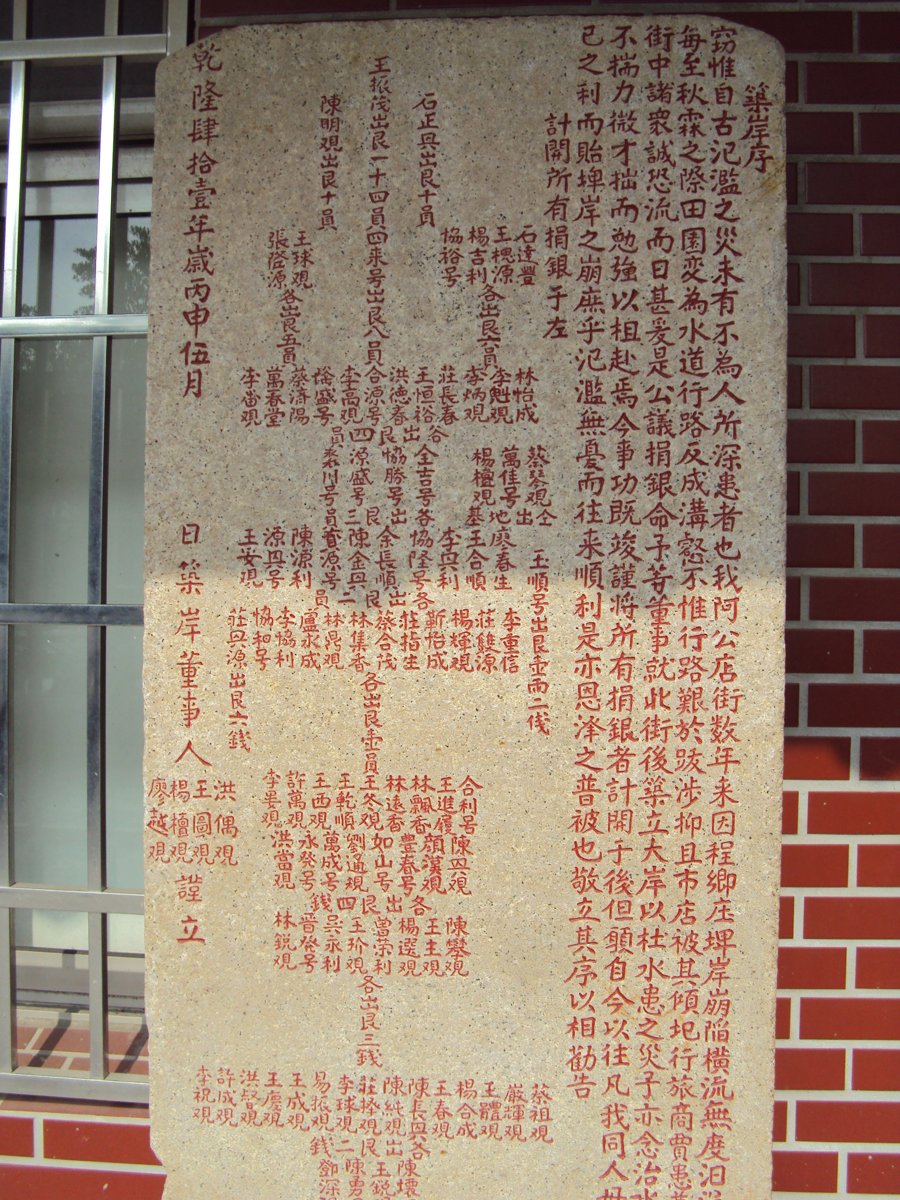 築岸序
窃惟自古氾濫之災未有不為人所深患者也我阿公店街数年来因程鄉庄埤岸崩陷橫流無度汨
每至秋霖之際田園变為水道行路反成溝壑不惟行路艱於跋涉抑且市店被其傾圮行旅商賈患
街中諸衆誠恐流而日甚爰是公議捐銀命予等董事就北街後築立大岸以杜水患之災予亦念治水
不揣力微才拙而勉強以徂赴焉今事功既竣謹將所有捐銀者計開于後但願自今以往凡我同人毋
己之利而貽埤岸之崩庶乎氾濫無憂而往来順利是亦恩泽之普被也敬立其序以相勸告
計開所有捐銀于左
石正興出艮十員
王振茂出艮一十四員
陳明观出艮十員
石達豐
王樬源
楊吉利
協裕号
各出艮六員
四来号出艮八員
王球观
張啓源
各出艮五員
林怡成
李魁观
李炳观
莊長春
王恒裕
洪德春
合源号
李高观
蔡濟陽
萬春堂
李当观
各出艮四員
蔡琴观出
萬佳号地
楊檀观基
全吉号
協勝号
源盛号
各出艮三員
廖春生
王合順
李興利
協隆号
余長順
陳金興
陳源利
源興号
王安观
各出艮二員
王順号出艮壹両二伐
李重信
莊雙源
楊輝观
靳怡成
莊指生
蔡合茂
林集香
林勝观
盧永成
李協利
協和号
各出艮壹員
莊興源出艮六錢
合利号
王進履
林飄香
林遠香
王冬观
王乾順
王西观
許萬观
李晏观
陳四观
顏漢观
豊春号
如山号
劉通观
萬成号
永発号
洪當观
各出艮四錢
陳攀观
王主观
楊選观
曾荣利
王玠观
吴永利
晉発号
林銳观
各出艮三錢
蔡祖观
嚴輝观
王體观
楊合成
王春观
陳長興
陳純观
莊捧观
李球观
易振观
王成观
王慶观
洪聲观
許成观
李祝观
各出艮二錢
乾隆肆拾壹年歲丙申伍月 日築岸董事人
洪偶观
王圓观
楊檀观
廖越观
證立